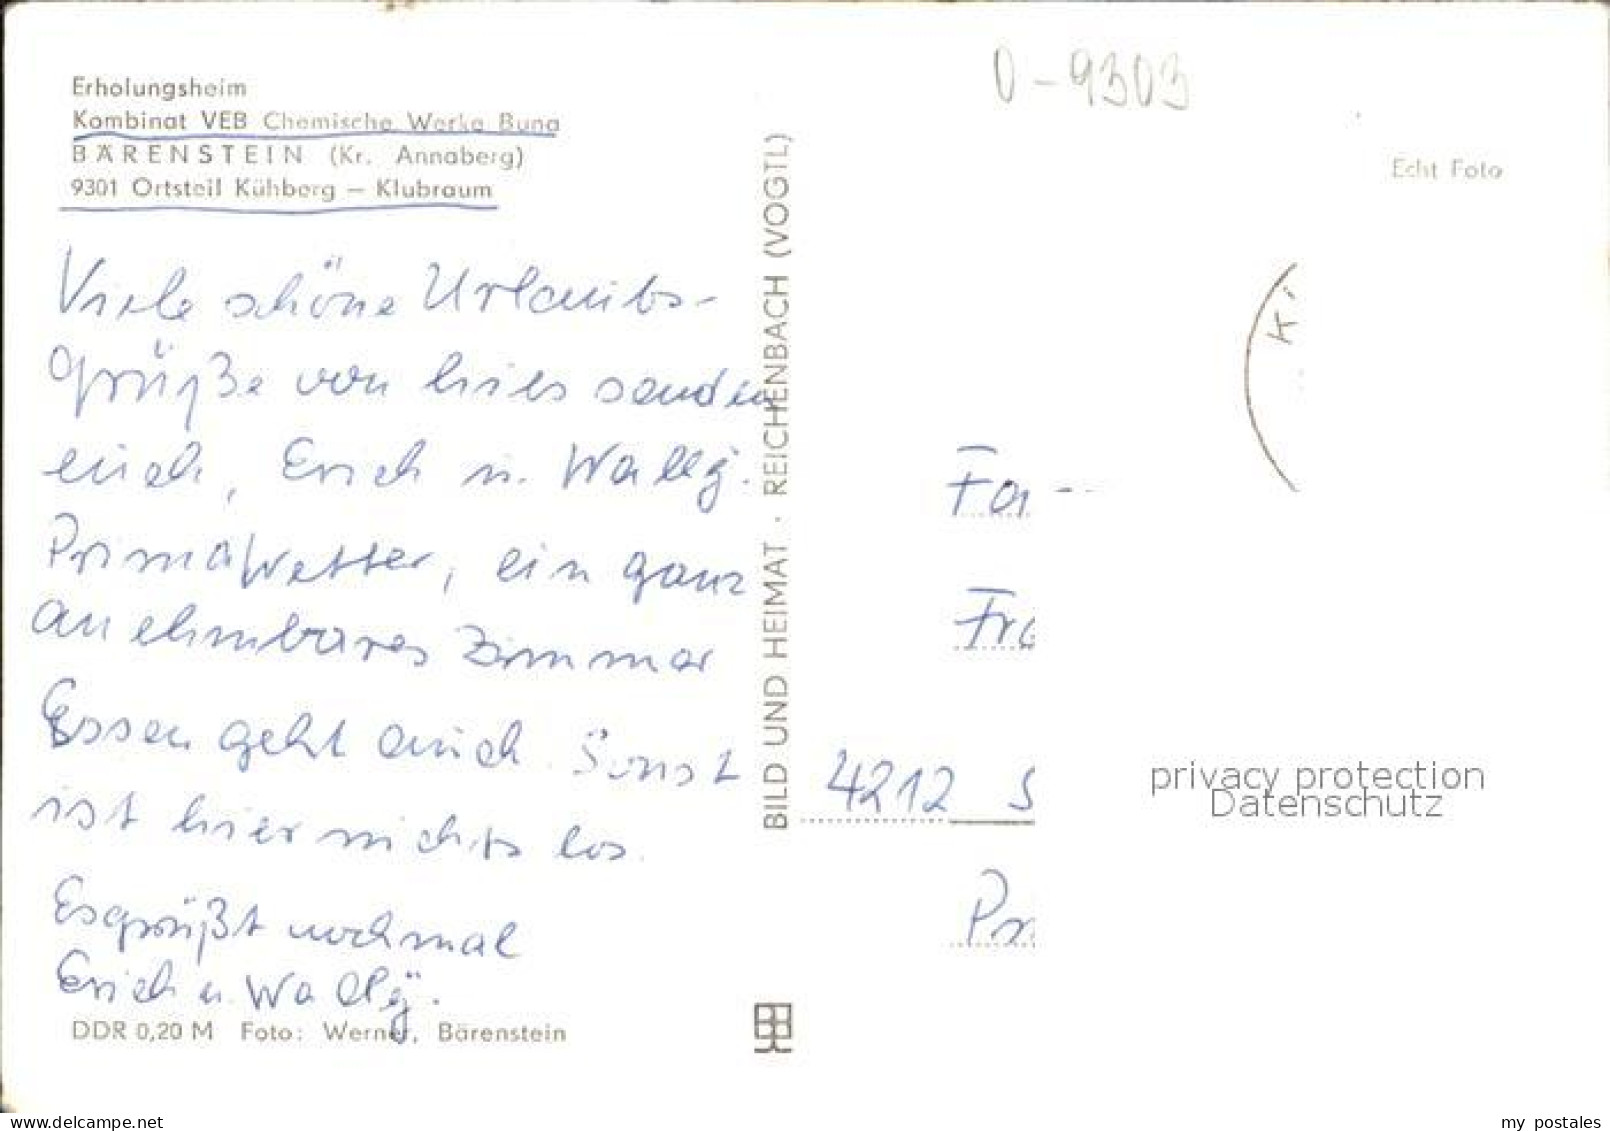 Erholungsheim
Kombinat VEB Chemische Werke Buna
BÄRENSTEIN (Kr. Annaberg)
9301 Ortsteil Kühberg — Klubraum
Viele schöne Urlaubs-
grüße von hier senden
euch, Erich u. Wally.
Prima Wetter, ein ganz
annehmbares Zimmer
Essen geht auch. Sonst
ist hier nichts los.
Es grüßt nochmal
Erich u. Wally.
DDR 0,20 M Foto: Werner, Bärenstein
BILD UND HEIMAT · REICHENBACH (VOGTL)
0-9303
Echt Foto
K
Fa
Fra
4212 S
Pr
privacy protection
Datenschutz
www.delcampe.net
my_postales